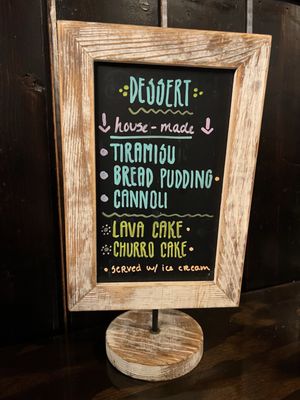 DESSERT
house-made
TIRAMISU
BREAD PUDDING
CANNOLI
LAVA CAKE
CHURRO CAKE
SERVED W/ ICE CREAM